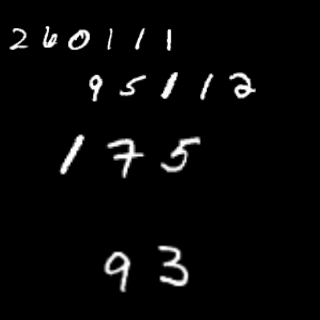 260111
95112
175
93